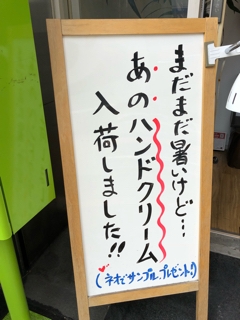 まだまだ暑いけど…
あのハンドクリーム
入荷しました!!
(ネオでサンプルプレゼント!)